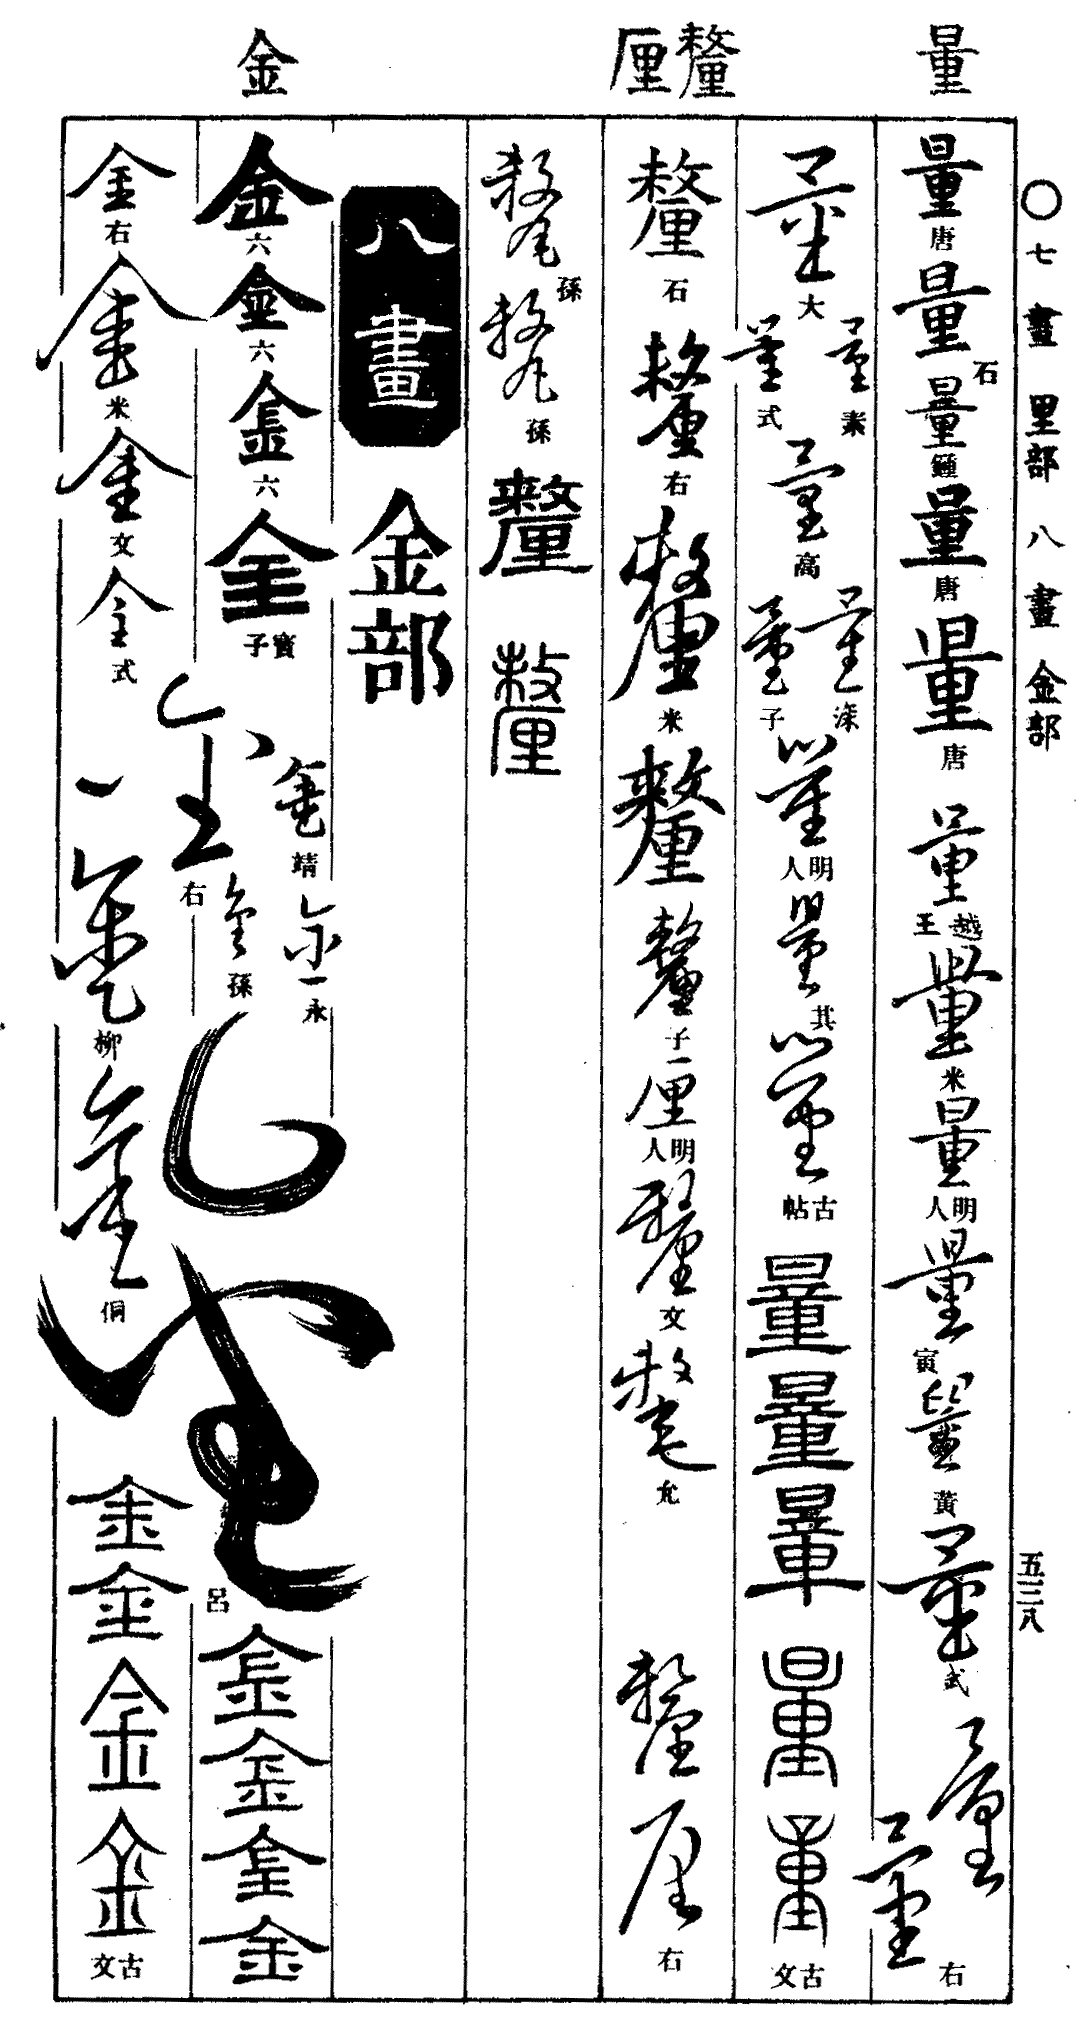 ○七畫 里部 八畫 金部
五三八
量
釐 厘
金
量 唐
量 石
量 鍾
量 唐
量 唐
量 越王
量 米
量 明人
量 寅
量 黄
量 式
量
量 右
量 大
量 素
量 式
量 高
量 深
量 子
量 明人
量 其
量 古帖
量
量
量
量
量 古文
釐 石
釐 右
釐 米
釐
釐 子
厘 明人
釐 文
釐 允
釐
厘 右
釐 孫
釐 孫
釐
釐
八畫
金部
金 六
金 六
金 六
金 寳子
金 靖
金 右
金 永
金 孫
金 呂
金
金
金
金
金 右
金 米
金 文
金 式
金 柳
金 侗
金
金
金
金 古文